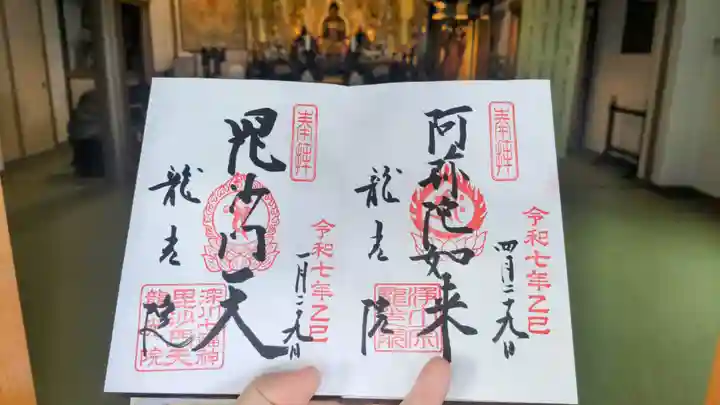 奉拝
阿弥陀如来
龍光院
令和七年乙巳
四月二十九日
浄心宗
龍光院
奉拝
毘沙門天
龍光院
令和七年乙巳
一月二十九日
深川七福神
毘沙門天
龍光院